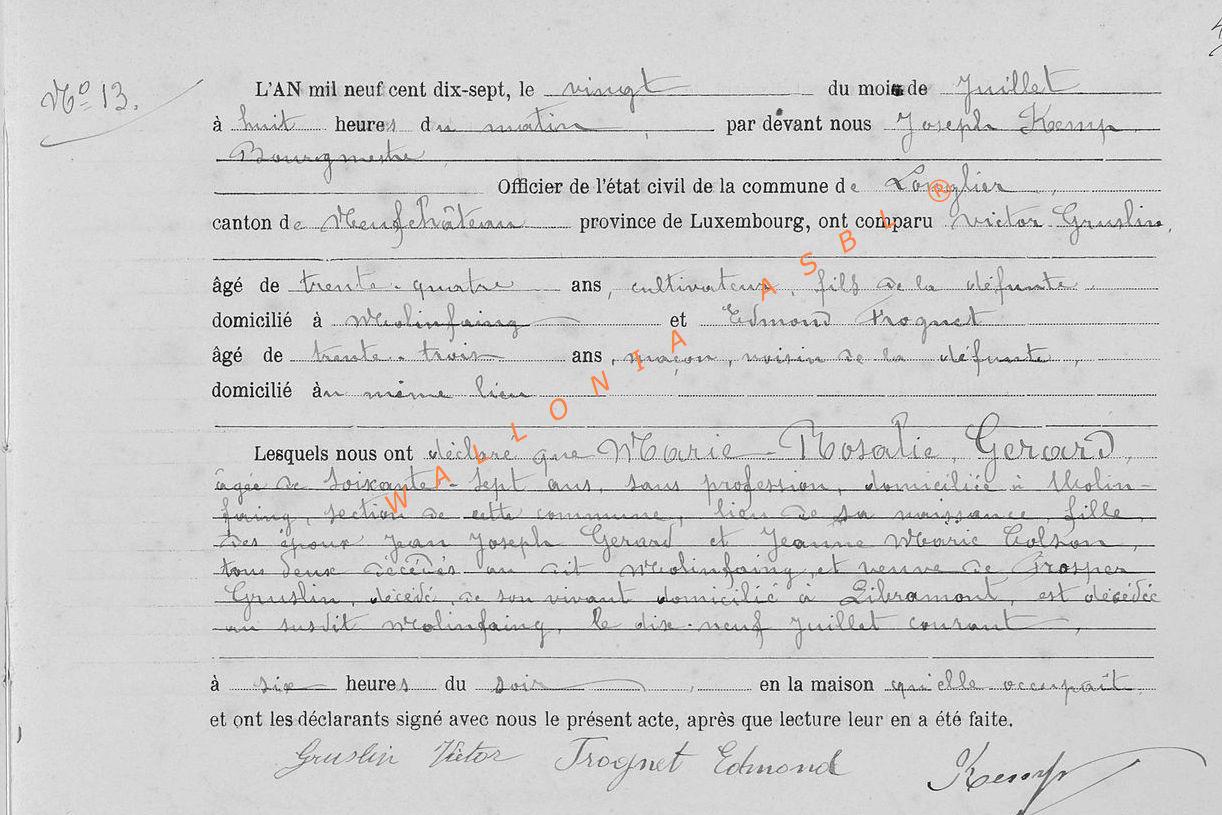 Nº 13.
L'AN mil neuf cent dix-sept, le vingt du mois de Juillet
à huit heures du matin, par devant nous Joseph Kemp,
Bourgmestre,
Officier de l'état civil de la commune de Longlier,
canton de Neufchâteau province de Luxembourg, ont comparu Victor Gruslin,
âgé de trente-quatre ans, cultivateur, fils de la défunte,
domicilié à Molinfaing et Edmond Trognet
âgé de trente-trois ans, maçon, voisin de la défunte,
domicilié au même lieu
Lesquels nous ont déclaré que Marie-Rosalie Gerard,
âgée de soixante-sept ans, sans profession, domiciliée à Molin-
faing, section de cette commune, lieu de sa naissance, fille
des époux Jean Joseph Gerard et Jeanne Marie Colson,
tous deux décédés au dit Molinfaing, et veuve de Prosper
Gruslin, décédé, de son vivant domicilié à Libramont, est décédée
au susdit Molinfaing, le dix-neuf Juillet courant,
à six heures du soir, en la maison qu'elle occupait,
et ont les déclarants signé avec nous le présent acte, après que lecture leur en a été faite.
Gruslin Victor Trognet Edmond Kemp
WALLONIA ASBL ®